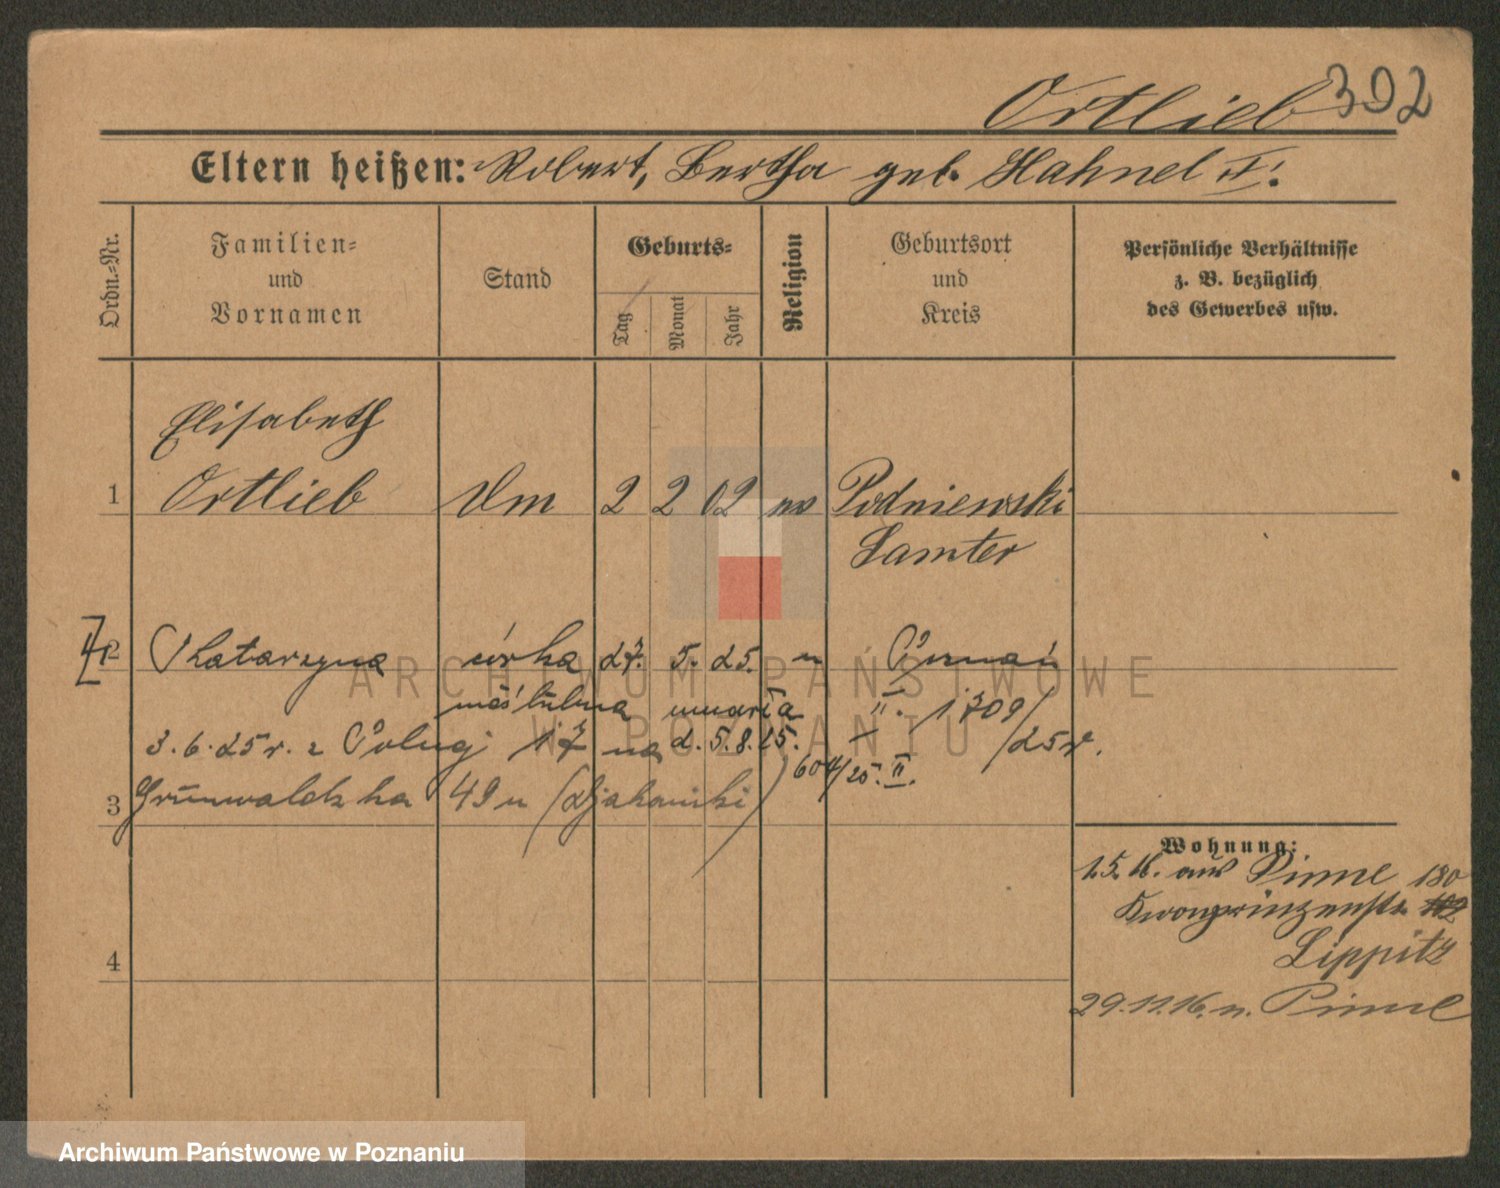 Ortlieb 392
Eltern heißen: Robert, Bertha geb. Hahnel
Ordn.-Nr.
Familien-
und
Vornamen
Stand
Geburts-
Tag
Monat
Jahr
Religion
Geburtsort
und
Kreis
Persönliche Verhältnisse
z. B. bezüglich
des Gewerbes usw.
Elisabeth
1 Ortlieb 2 2 02 Podniewski
Samter
2 Katarzyna córka 27. 5. 25. Poznań
nieślubna II. 1709/25r.
3.6.25r. z 17 na d. 5.8.25.
604/25. II.
3 Grunwaldzka 49
4
Wohnung:
1.5.16. aus Pinne 180
Kronprinzenstr. 102
Lippitz
29.11.16. n. Pinne
ARCHIWUM PAŃSTWOWE
W POZNANIU
Archiwum Państwowe w Poznaniu